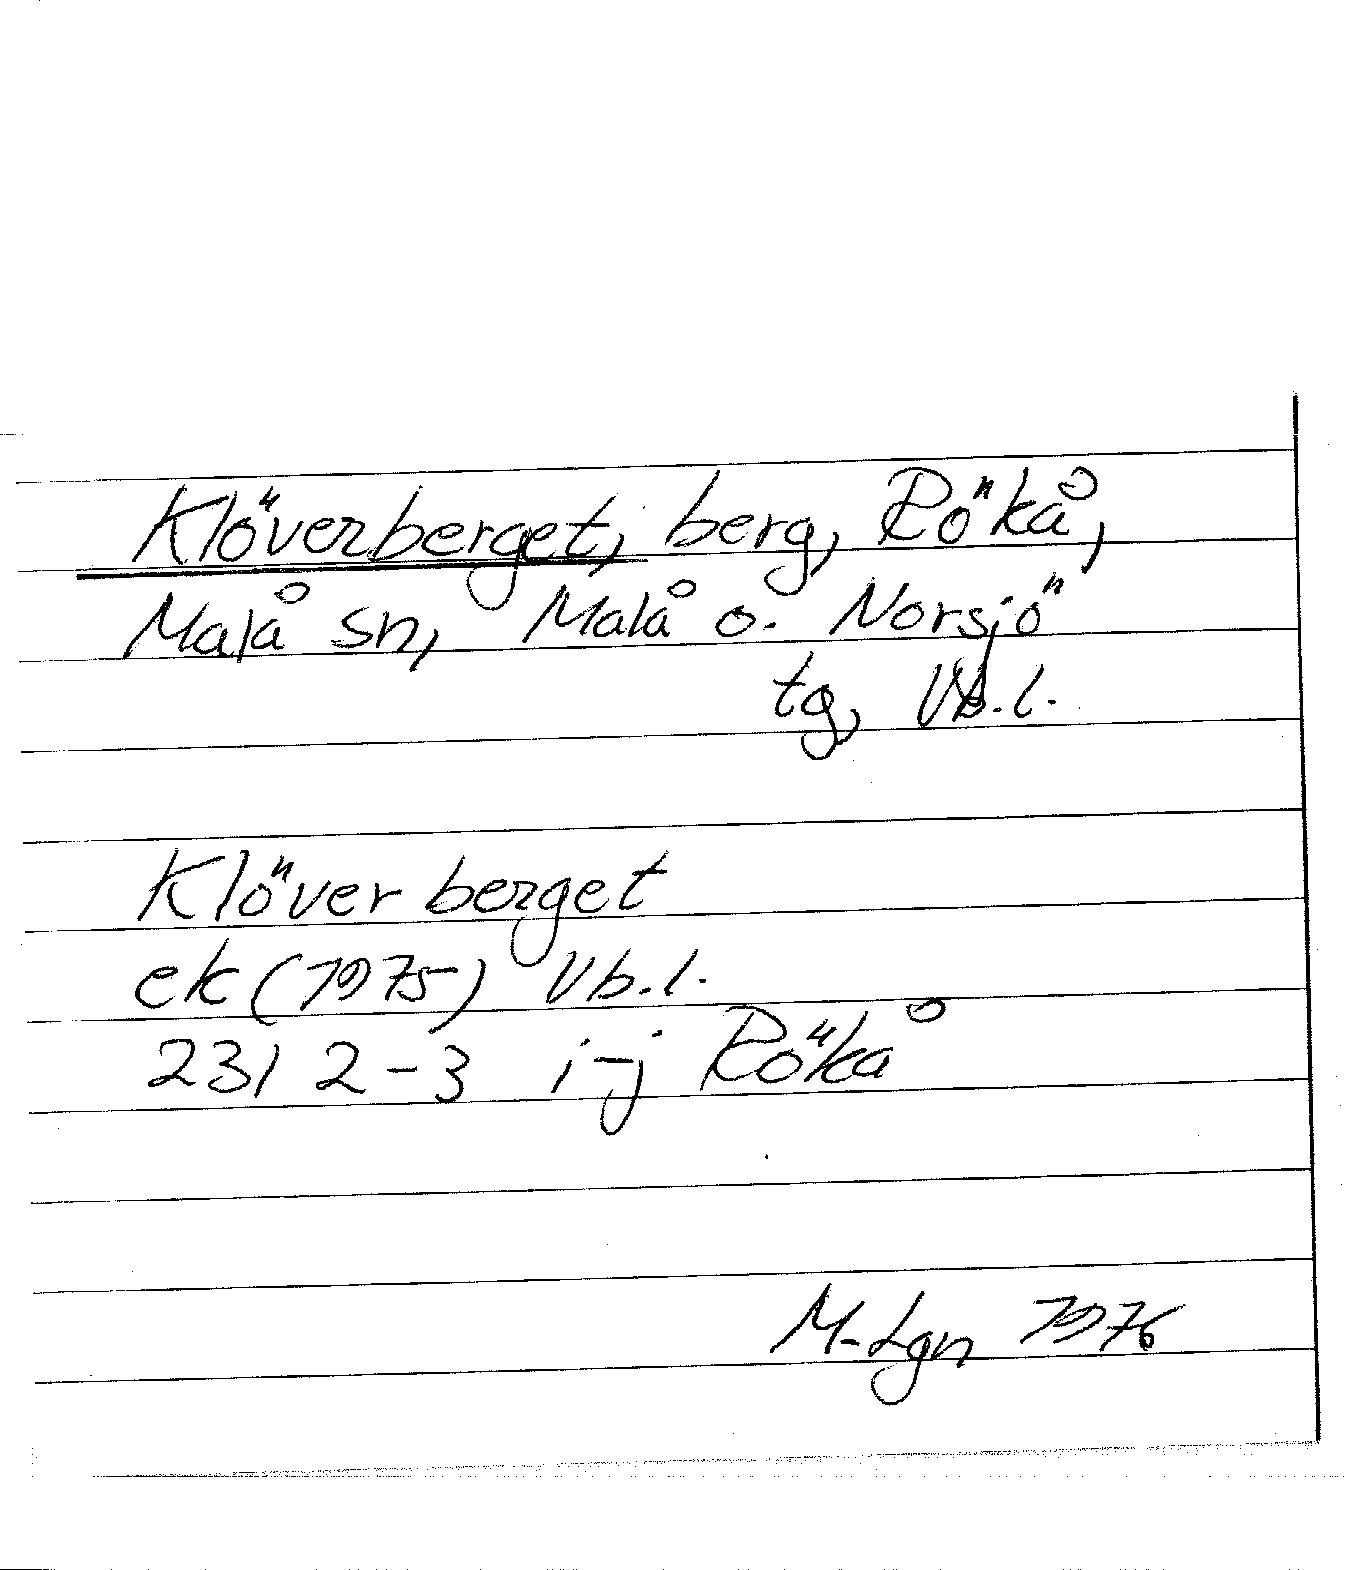 Klöverberget, berg, Rökå,
Malå sn, Malå o. Norsjö
tg, Vb.l.
Klöverberget
ek (1975) Vb.l.
23I 2-3 i-j Rökå
M-Lgn 1976